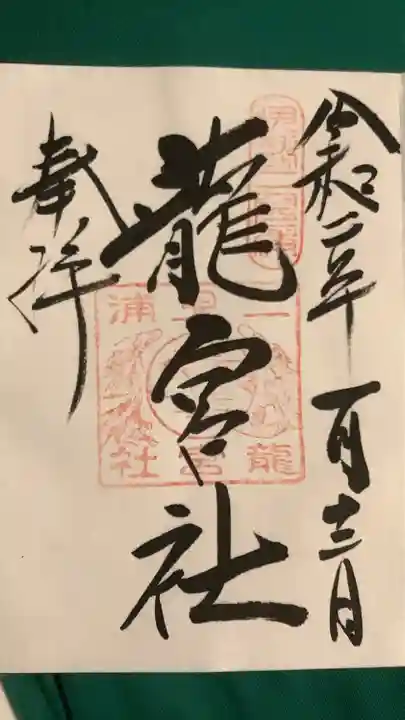 令和二年一月十三日
龍宮社
奉拝
一色浦
龍宮社